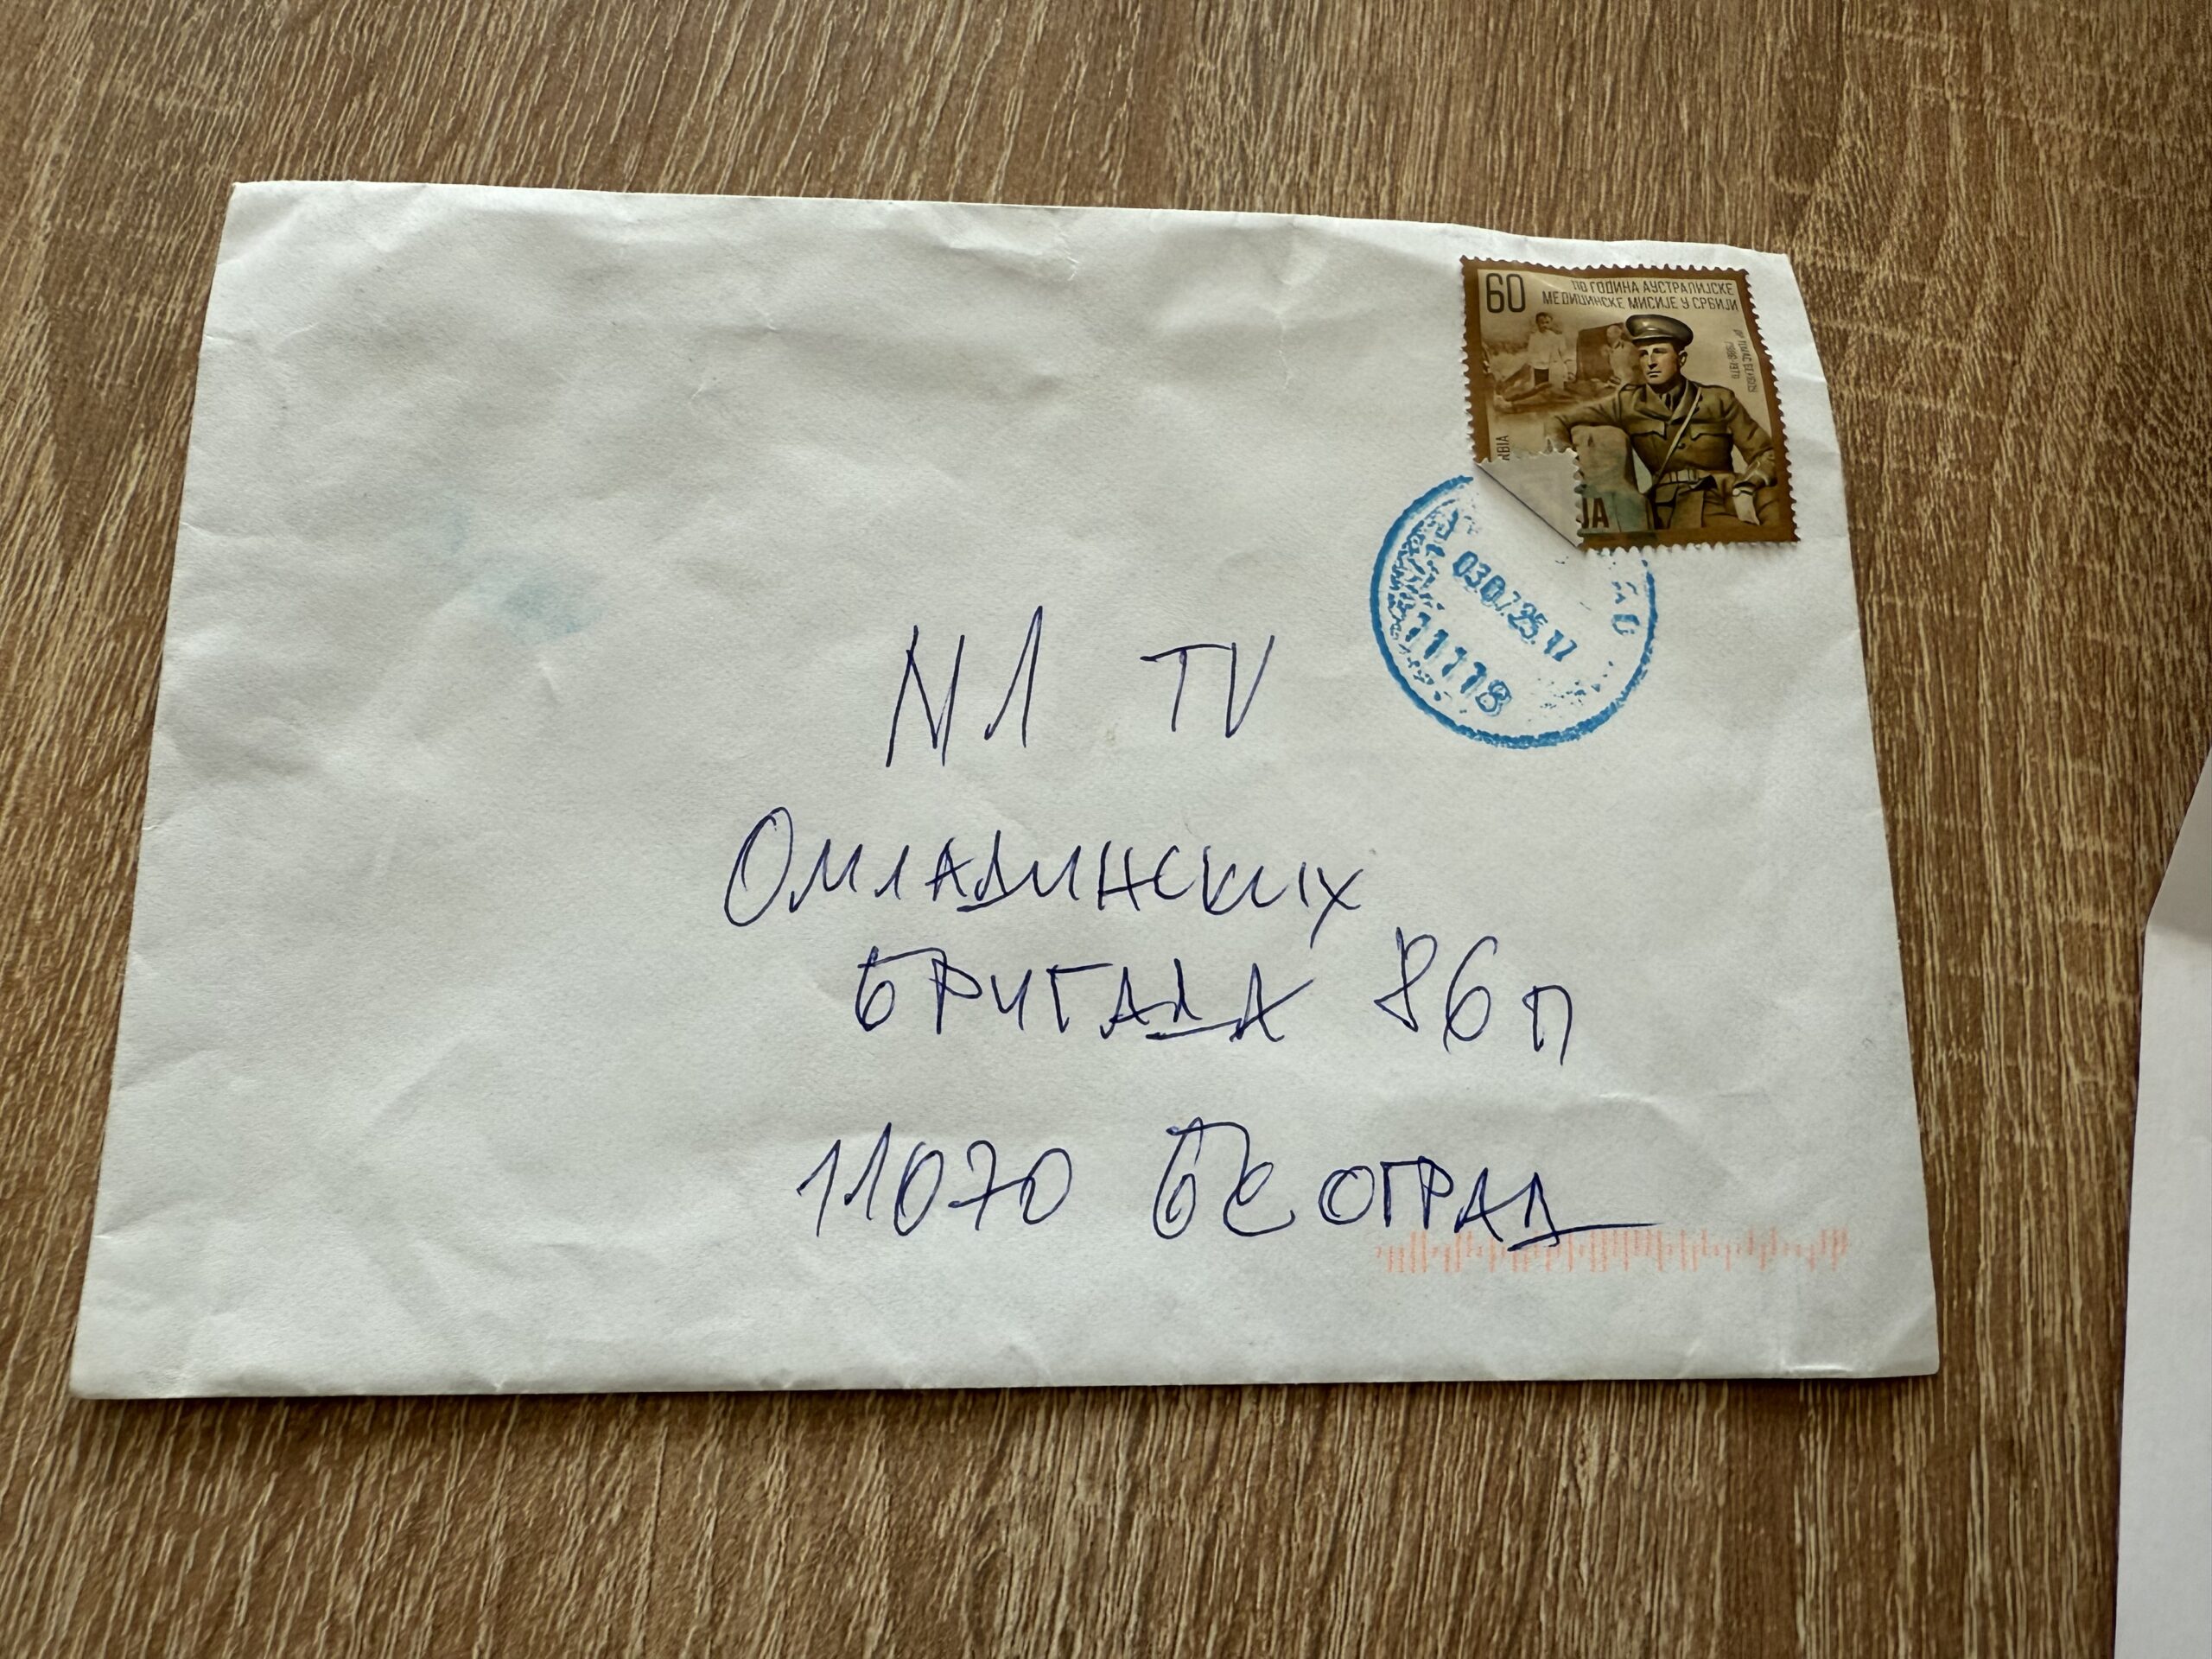 60
110 ГОДИНА АУСТРАЛИЈСКЕ
МЕДИЦИНСКЕ МИСИЈЕ У СРБИЈИ
ЈА
030.7.25.17
11118
N1 TV
ОМЛАДИНСКИХ
БРИГАДА 86п
11070 БЕОГРАД